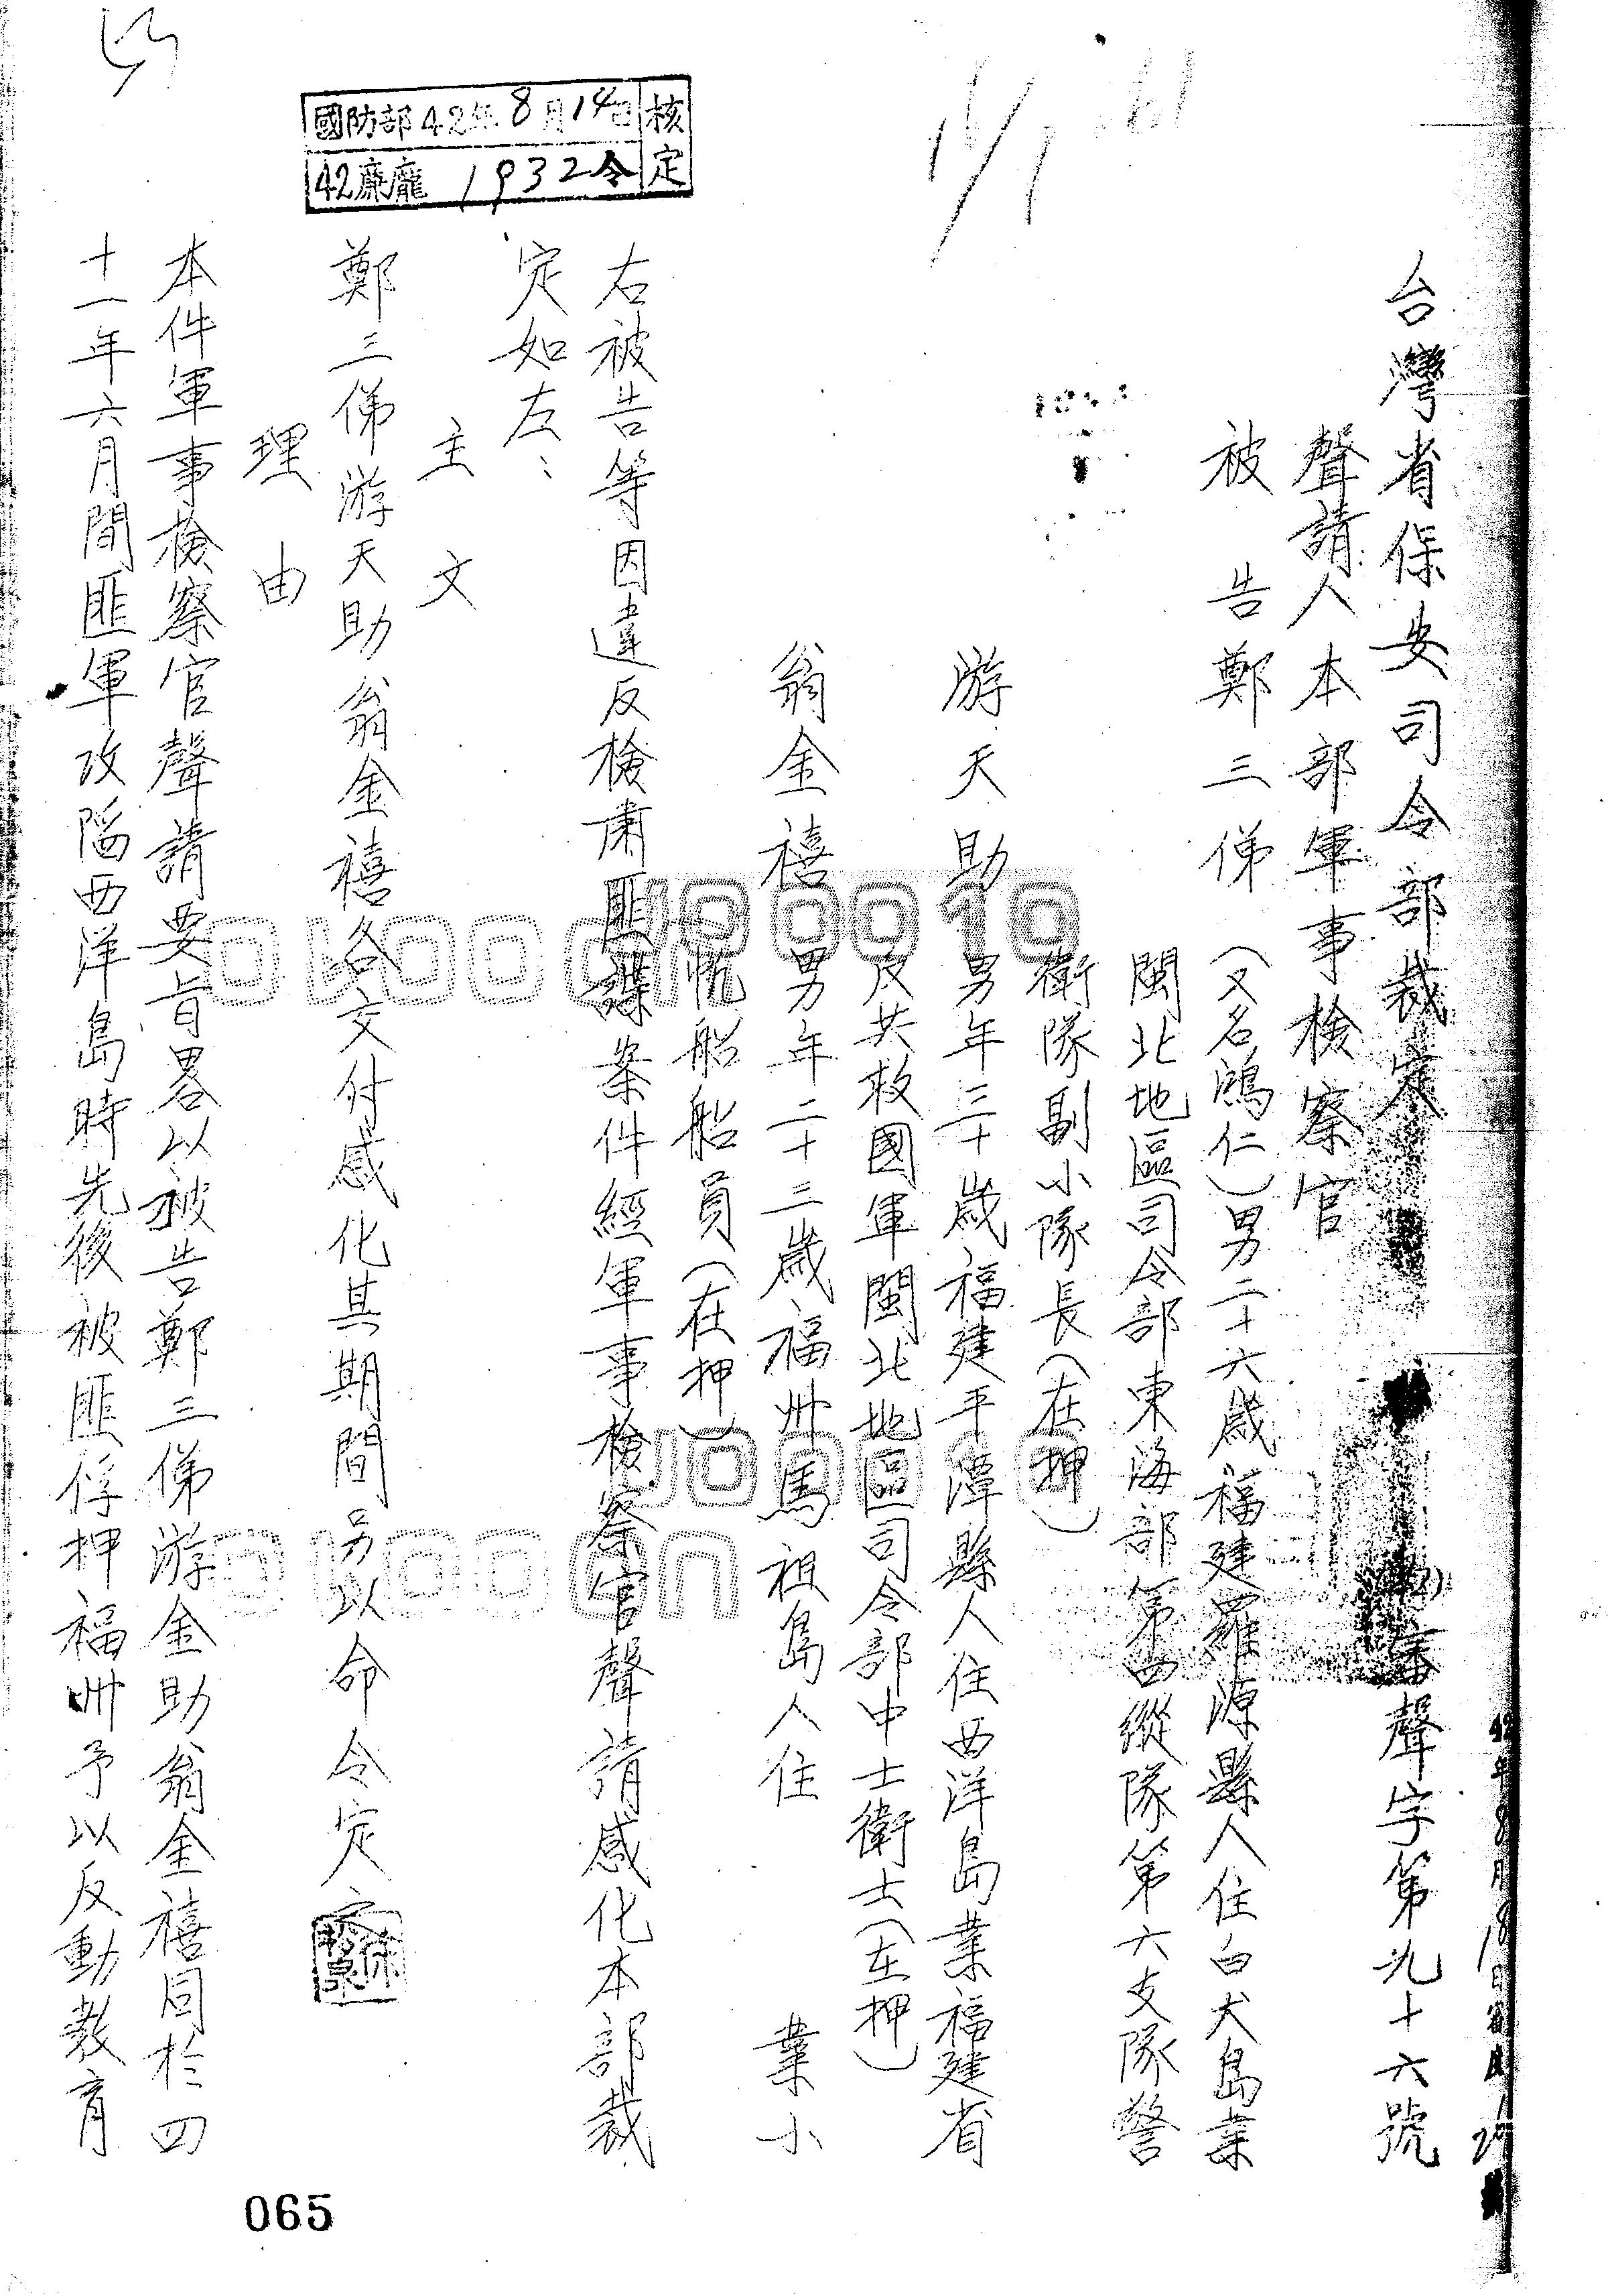 國防部42年8月14日核定
42廉龐1932令
台灣省保安司令部裁定
審聲字第九十六號
聲請人本部軍事檢察官
被告鄭三俤(又名鴻仁)男二十六歲福建羅源縣人住白犬島業
閩北地區司令部東海部第四縱隊第六支隊警
衛隊副小隊長(在押)
游天助男年三十歲福建平潭縣人住西洋島業福建省
反共救國軍閩北地區司令部中士衛士(在押)
翁金禧男年二十三歲福州馬祖島人住 業小
帆船船員(在押)
右被告等因違反檢肅匪諜案件經軍事檢察官聲請感化本部裁
定如左:
主文
鄭三俤游天助翁金禧各交付感化其期間另以命令定之
理由
本件軍事檢察官聲請要旨畧以被告鄭三俤游金助翁金禧同於四
十一年六月間匪軍攻陷西洋島時先後被匪俘押福州予以反動教育
065